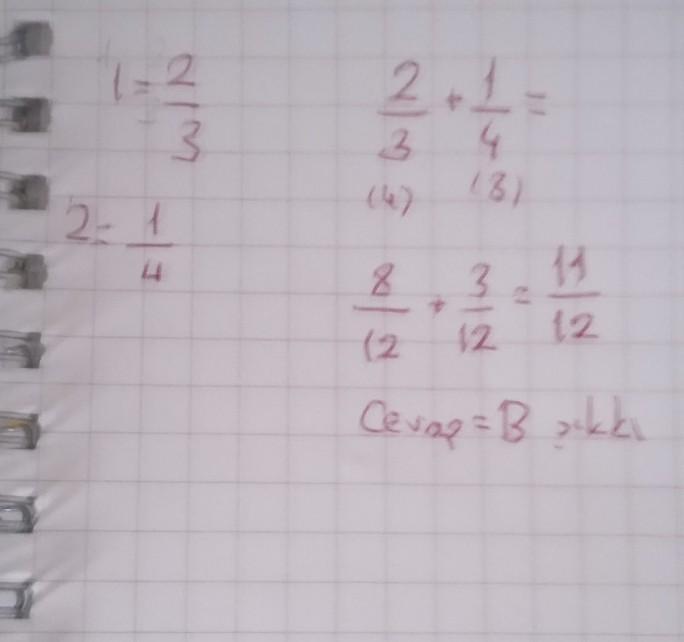 1 = 2/3
2 = 1/4
2/3 + 1/4 =
(4) (3)
8/12 + 3/12 = 11/12
Cevap = B şıkkı